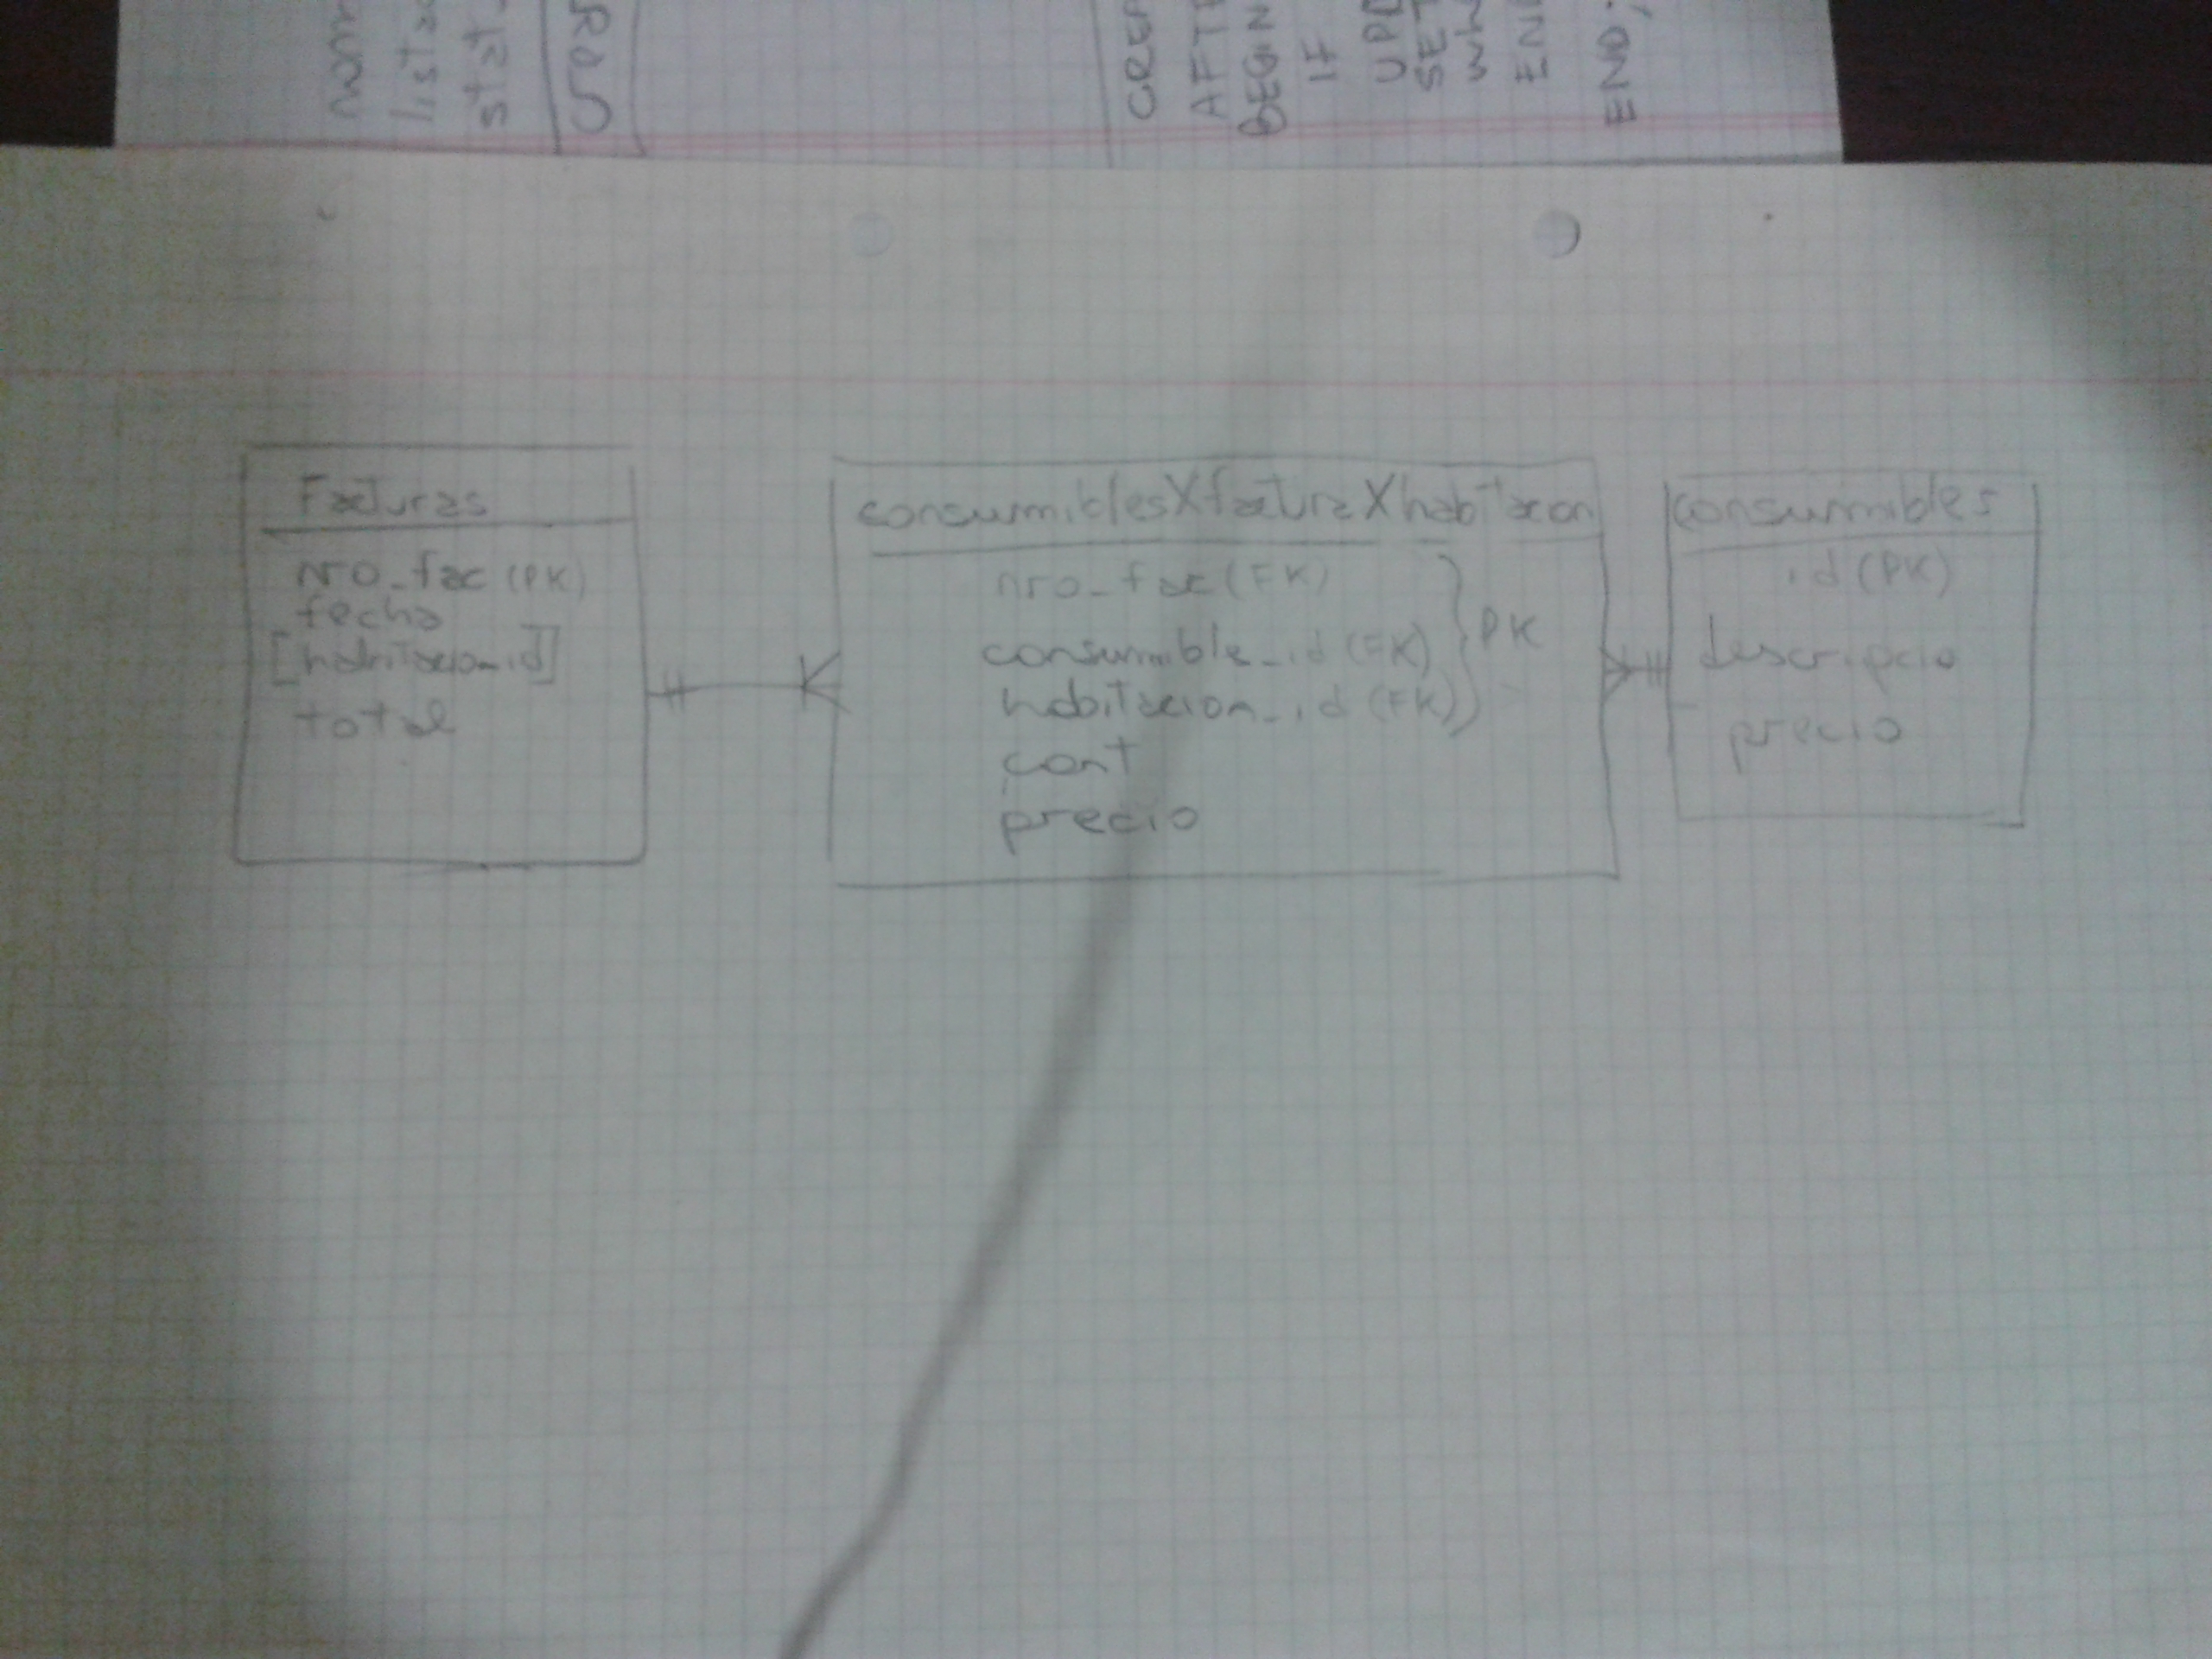 nom
list
stat
CREA
AFTE
BEGIN
IF
UPD
SET
whe
EN
END;
Facturas
nro_fac (PK)
fecha
[habitacion_id]
total
consumiblesXfacturaXhabitacion
nro_fac (FK)
consumible_id (FK)
habitacion_id (FK)
PK
cant
precio
consumibles
id (PK)
descripcio
precio